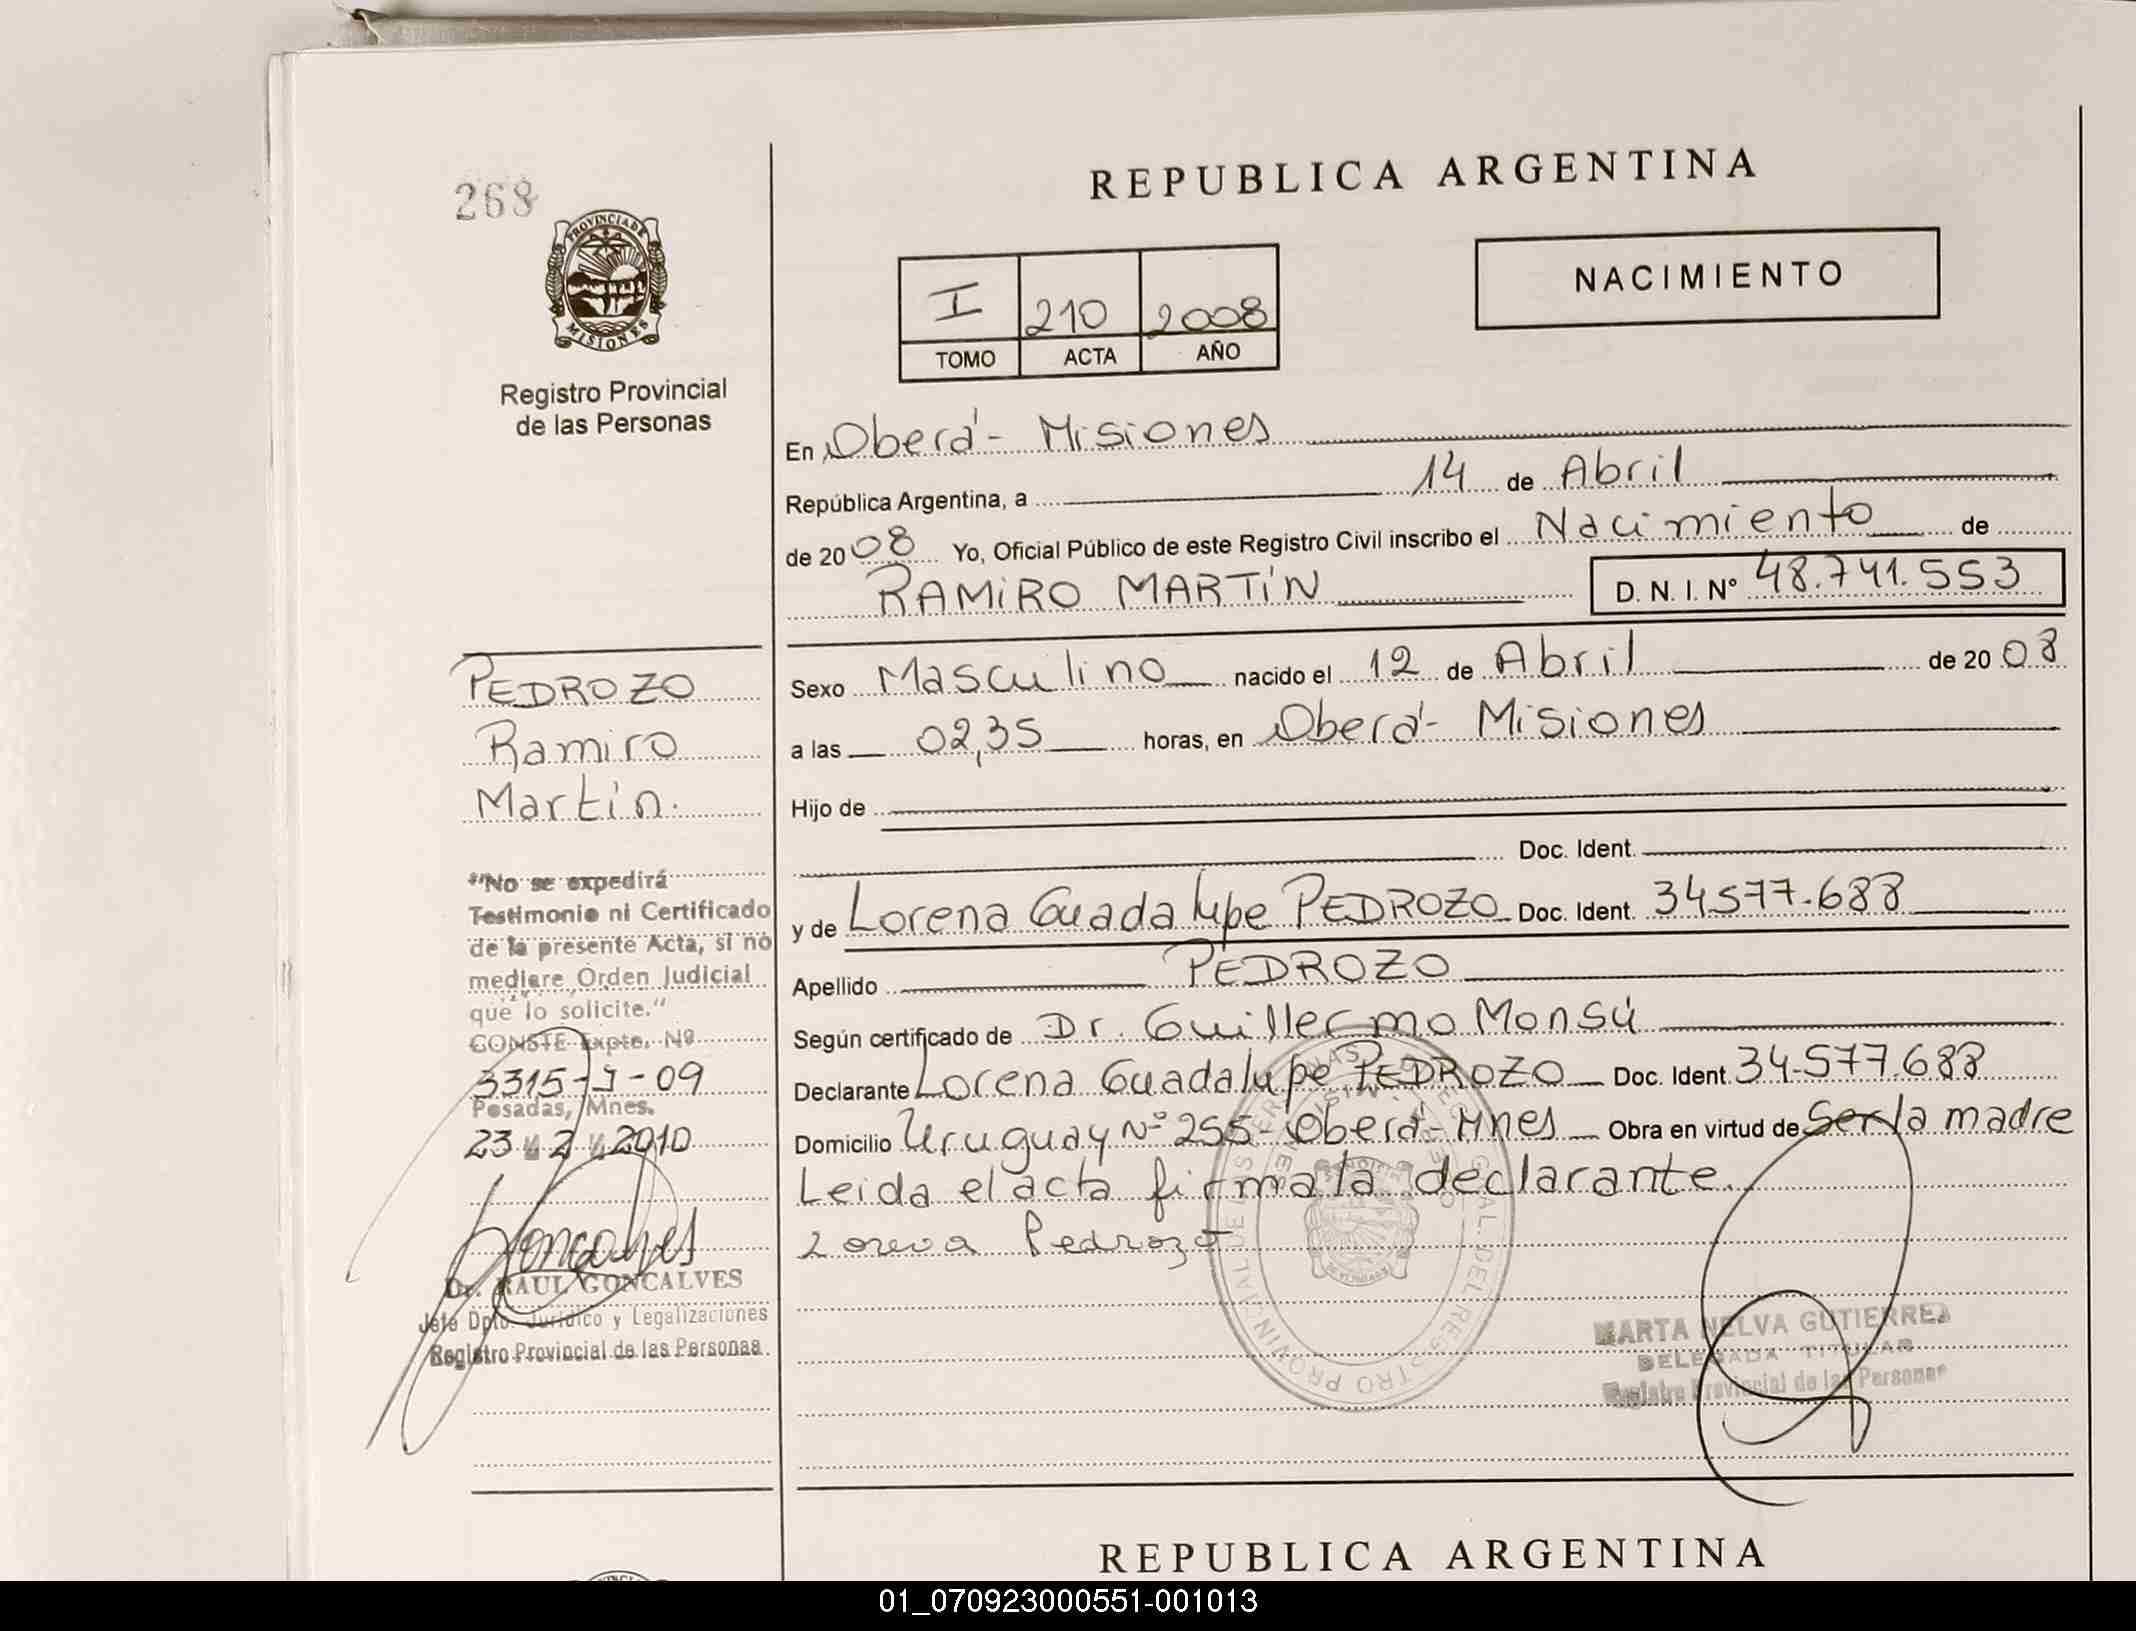 268
PROVINCIA DE
MISIONES
Registro Provincial
de las Personas
REPUBLICA ARGENTINA
I 210 2008
TOMO ACTA AÑO
NACIMIENTO
En Oberá - Misiones
República Argentina, a 14 de Abril
de 2008 Yo, Oficial Público de este Registro Civil inscribo el Nacimiento de
RAMIRO MARTÍN D. N. I. Nº 48.741.553
Sexo Masculino nacido el 12 de Abril de 2008
a las 02,35 horas, en Oberá - Misiones
Hijo de
Doc. Ident.
y de Lorena Guadalupe PEDROZO Doc. Ident. 34577.688
Apellido PEDROZO
Según certificado de Dr. Guillermo Monsú
Declarante Lorena Guadalupe PEDROZO Doc. Ident. 34.577.688
Domicilio Uruguay Nº 255 Oberá - Mnes Obra en virtud de Ser la madre
Leida el acta firma la declarante.
Lorena Pedrozo
MARTA NELVA GUTIERREZ
DELEGADA TITULAR
Registro Provincial de las Personas
PEDROZO
Ramiro
Martín.
"No se expedirá
Testimonio ni Certificado
de la presente Acta, si no
mediare Orden Judicial
que lo solicite."
CONSTE Expte. Nº
3315-J-09
Posadas, Mnes.
23 2 2010
Goncalves
Dr. RAUL GONCALVES
Jefe Dpto. Jurídico y Legalizaciones
Registro Provincial de las Personas
REPUBLICA ARGENTINA
01_070923000551-001013